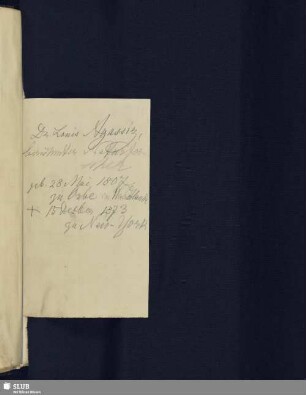 Dr Louis Agassiz,
berühmter Naturfor-
scher
geb. 28. Mai 1807
zu Orbe in Waadtland
† 15 Dezbr 1873
zu New-York
SLUB